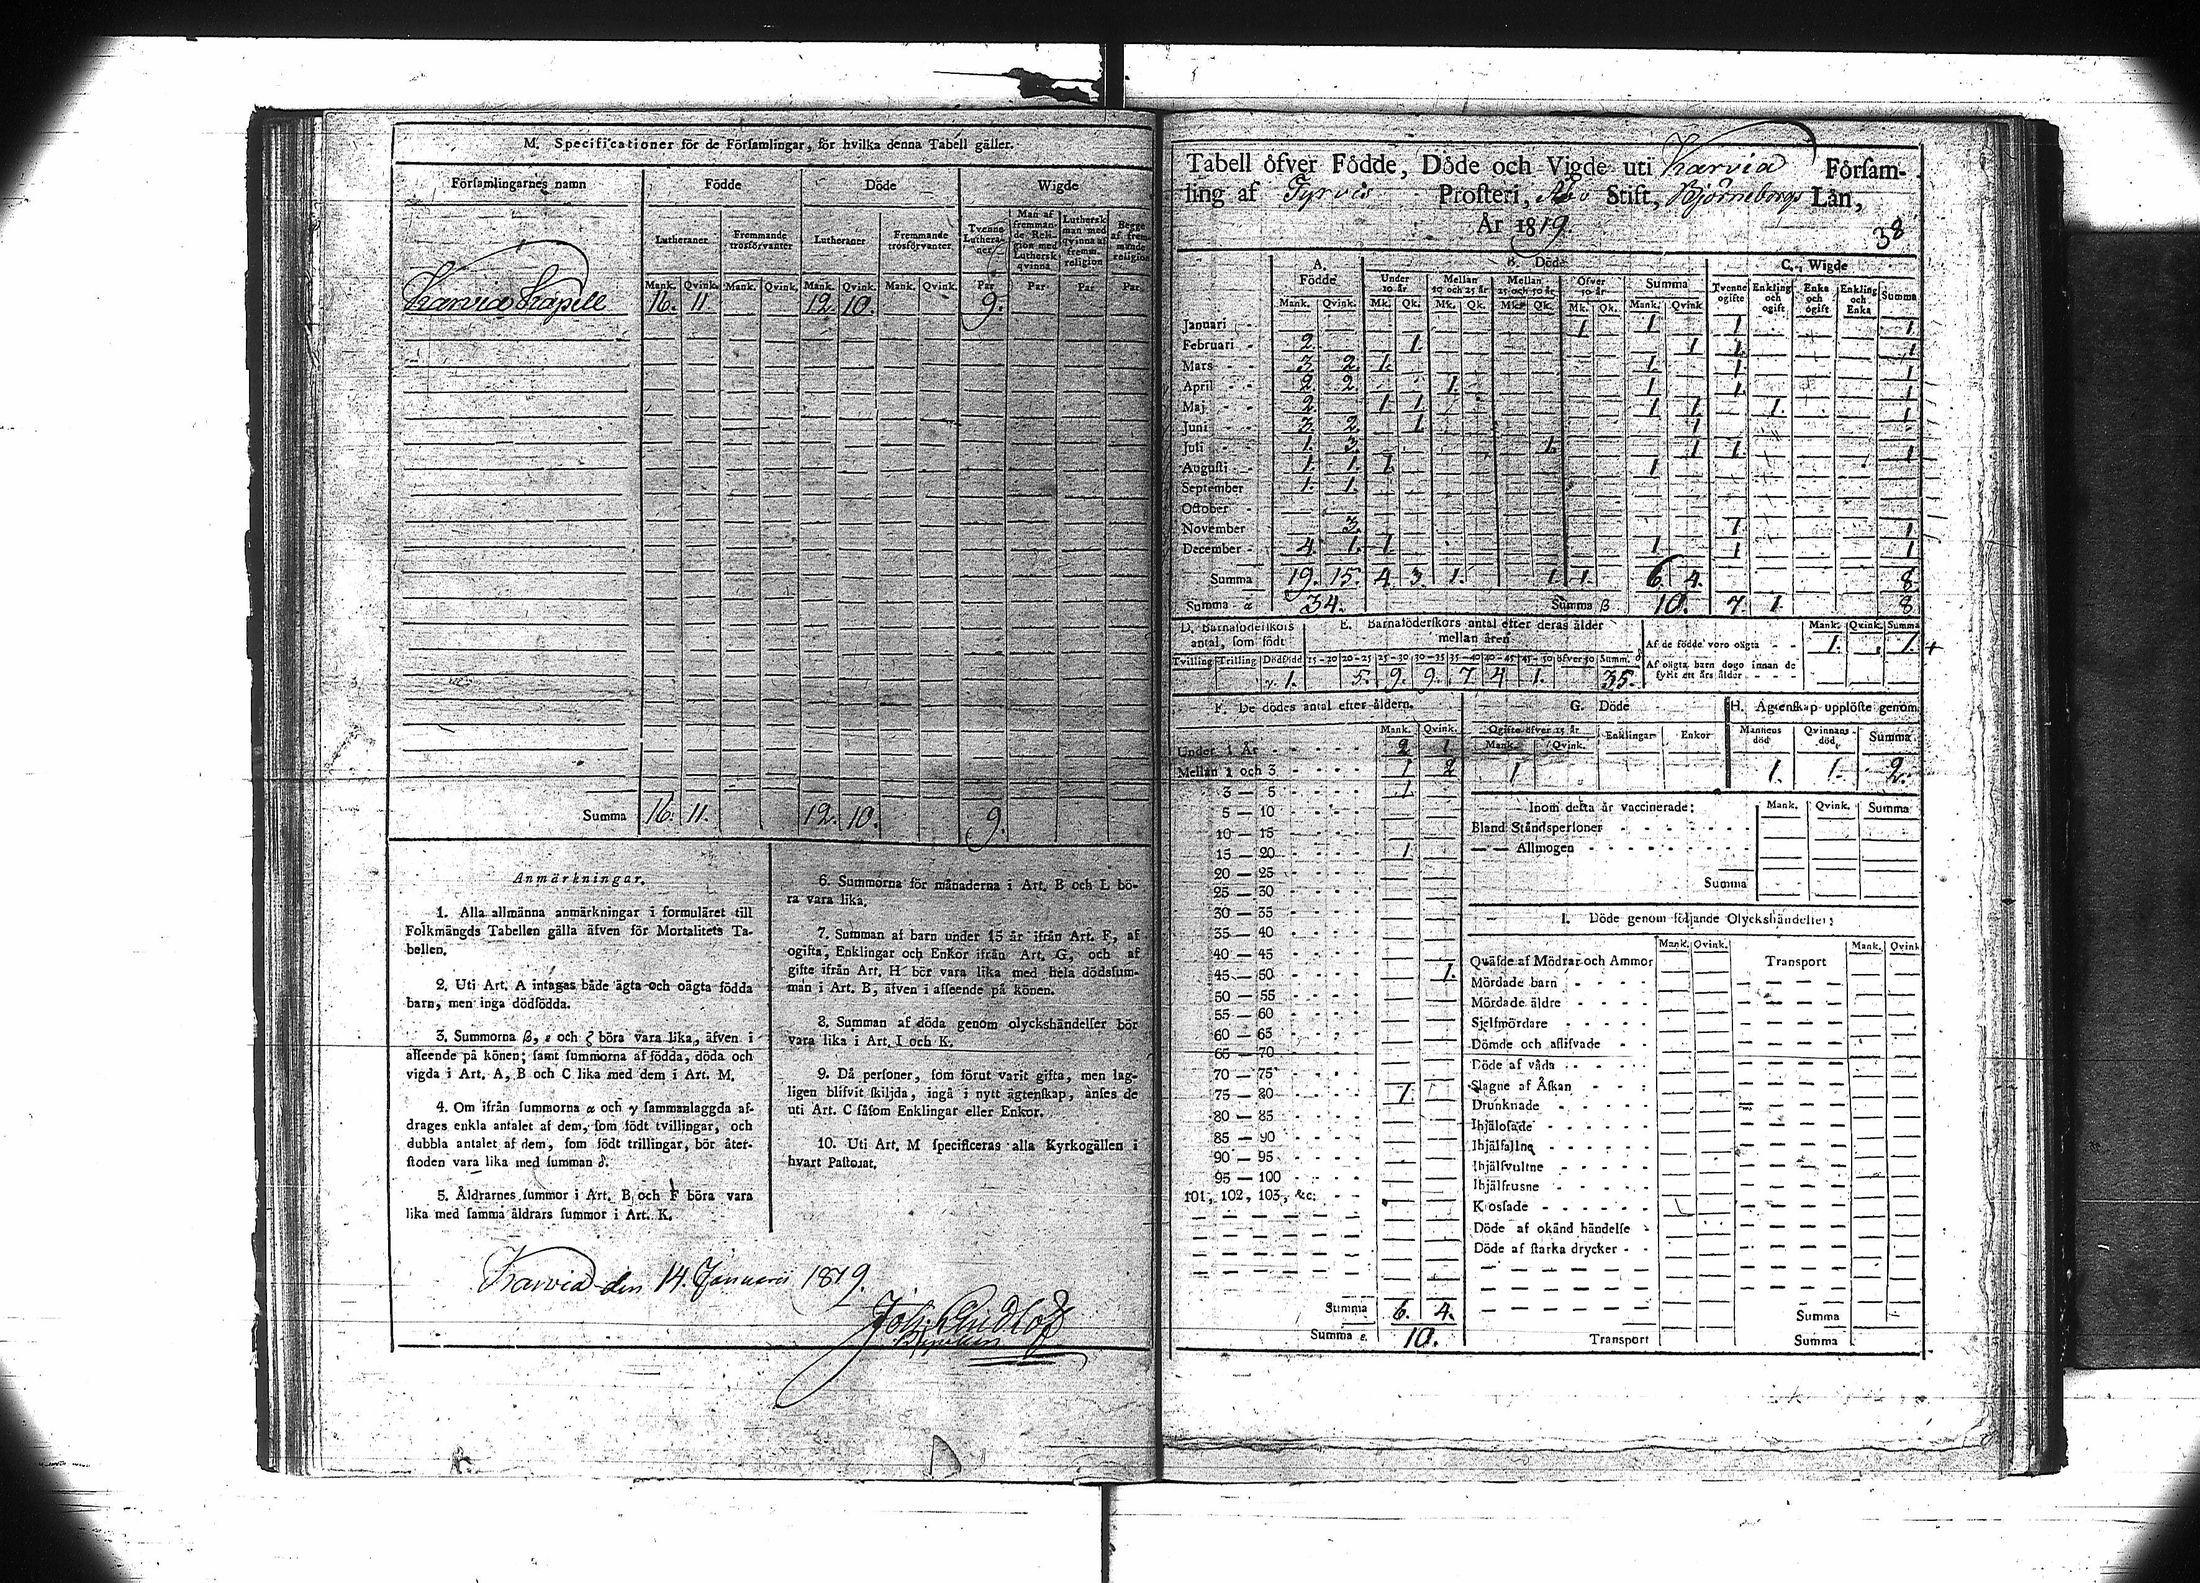 M. Specificationer för de Församlingar, för hvilka denna Tabell gäller.
Församlingarnes namn Födde Döde Wigde
Lutheraner Fremmande trosförvanter Lutheraner Fremmande trosförvanter Tvenne Lutheraner Man af fremmande Religion med Luthersk qvinna Luthersk man med qvinna af fremm. religion Begge af fremmande religion
Mank. Qvink. Mank. Qvink. Mank. Qvink. Mank. Qvink. Par Par Par Par
Karvia Kapell 16. 11. 12. 10. 9.
Summa 16. 11. 12. 10. 9.
Anmärkningar.
1. Alla allmänna anmärkningar i formuläret till
Folkmängds Tabellen gälla äfven för Mortalitets Ta-
bellen.
2. Uti Art. A intagas både ägta och oägta födda
barn, men inga dödfödda.
3. Summorna β, ε och ζ böra vara lika, äfven i
afseende på könen; samt summorna af födda, döda och
vigda i Art. A, B och C lika med dem i Art. M.
4. Om ifrån summorna α och γ sammanlaggda af-
drages enkla antalet af dem, som födt tvillingar, och
dubbla antalet af dem, som födt trillingar, bör åter-
stoden vara lika med summan δ.
5. Åldrarnes summor i Art. B och F böra vara
lika med samma åldrars summor i Art. K.
6. Summorna för månaderna i Art. B och L bö-
ra vara lika.
7. Summan af barn under 15 år ifrån Art. F, af
ogifta, Enklingar och Enkor ifrån Art. G, och af
gifte ifrån Art. H bör vara lika med hela dödssum-
man i Art. B, äfven i afseende på könen.
8. Summan af döda genom olyckshändelser bör
vara lika i Art. I och K.
9. Då personer, som förut varit gifta, men lag-
ligen blifvit skiljda, ingå i nytt ägtenskap, anses de
uti Art. C såsom Enklingar eller Enkor.
10. Uti Art. M specificeras alla Kyrkogällen i
hvart Pastorat.
Karvia den 14. Januarii 1819.
Tabell öfver Födde, Döde och Vigde uti Karvia Försam-
ling af Tyrvis Prosteri, Åbo Stift, Björneborgs Län,
År 1819.
38
A. Födde B. Döde C. Wigde
Under 10 år Mellan 10 och 25 år Mellan 25 och 50 år Öfver 50 år Summa Tvenne ogifte Enkling och ogift Enka och ogift Enkling och Enka Summa
Mank. Qvink. Mk. Qk. Mk. Qk. Mk. Qk. Mk. Qk. Mank. Qvink
Januari 1 1 1 1
Februari 2 1. 1 1. 1
Mars 3 2. 1. 1. 1 1
April 2 2 1. 1 1. 1
Maj 2 1 1 1 1. 1. 1
Juni 3 2 1 1
Juli 1. 3 1. 1 1. 1
Augusti 1 1. 1. 1
September 1. 1.
October
November 3. 1 1
December 4. 1. 1. 1 1 1
Summa 19. 15. 4. 3. 1. 1 1. 6. 4. 8
Summa α 34. Summa β 10. 7. 1. 8
D. Barnaföderskors antal, som födt
E. Barnaföderskors antal efter deras ålder mellan åren
Tvilling Trilling Dödfödd 15-20 20-25 25-30 30-35 35-40 40-45 45-50 öfver 50 Summ. δ
γ. 1. 5. 9. 9. 7 4 1. 35.
Mank. Qvink. Summa
Af de födde voro oägta 1. 1. +
Af oägta barn dogo innan de
fyllt ett års ålder
F. De dödes antal efter åldern.
Mank. Qvink.
Under 1 År 2 1
Mellan 1 och 3 1 2
3 — 5 1
5 — 10
10 — 15
15 — 20 1
20 — 25
25 — 30
30 — 35
35 — 40
40 — 45
45 — 50 1.
50 — 55
55 — 60
60 — 65
65 — 70
70 — 75
75 — 80 1.
80 — 85
85 — 90
90 — 95
95 — 100
101, 102, 103, &c:
Summa 6. 4.
Summa ε. 10.
G. Döde
Ogifte öfver 15 år Enklingar Enkor
Mank. Qvink.
1
H. Ägtenskap upplöste genom
Mannens död Qvinnans död, Summa
1. 1. 2.
Inom detta år vaccinerade: Mank. Qvink. Summa
Bland Ståndspersoner
— — Allmogen
Summa
I. Döde genom följande Olyckshändelser:
Mank. Qvink. Mank. Qvink
Qväfde af Mödrar och Ammor Transport
Mördade barn
Mördade äldre
Sjelfmördare
Dömde och aflifvade
Döde af våda
Slagne af Åskan
Drunknade
Ihjälosade
Ihjälfallne
Ihjälsvultne
Ihjälfrusne
Kiosfade
Döde af okänd händelse
Döde af starka drycker
Summa
Transport Summa